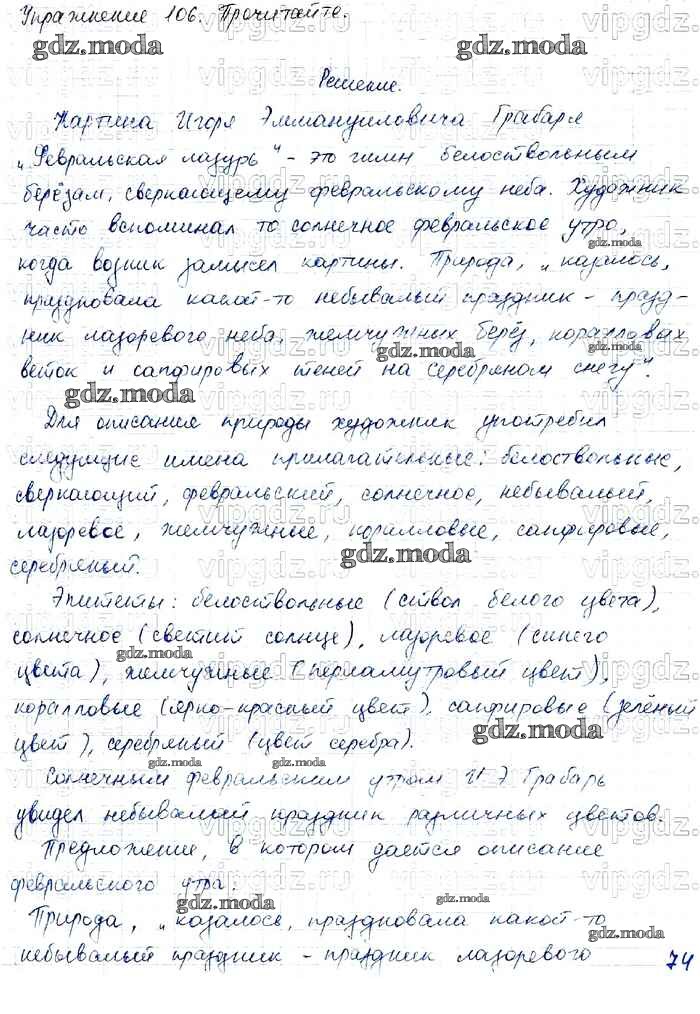 Упражнение 106. Прочитайте.
Решение.
Картина Игоря Эммануиловича Грабаря
„Февральская лазурь" - это гимн белоствольным
берёзам, сверкающему февральскому неба. Художник
часто вспоминал то солнечное февральское утро,
когда возник замысел картины. Природа, „казалось,
праздновала какой-то небывалый праздник - празд-
ник лазоревого неба, жемчужных берёз, коралловых
веток и сапфировых теней на серебряном снегу".
Для описание природы художник употребил
следующие имена прилагательные: белоствольные,
сверкающий, февральский, солнечное, небывалый,
лазоревое, жемчужные, коралловые, сапфировые,
серебряный.
Эпитеты: белоствольные (ствол белого цвета),
солнечное (светит солнце), лазоревое (синего
цвета), жемчужные (перламутровый цвет),
коралловые (ярко-красный цвет), сапфировые (зелёный
цвет), серебряный (цвет серебра).
Солнечным февральским утром И Э Грабарь
увидел небывалый праздник различных цветов.
Предложение, в котором дается описание
февральского утра:
Природа, „казалось, праздновала какой-то
небывалый праздник - праздник лазоревого
74
gdz.moda
vipgdz.ru